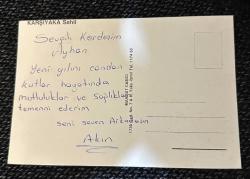 KARŞIYAKA Sahil
Sevgili Kardeşim
Ayhan
Yeni yılını candan
kutlar hayatında
mutluluklar ve sağlıklar
temenni ederim
seni seven Arkadaşın
Akın